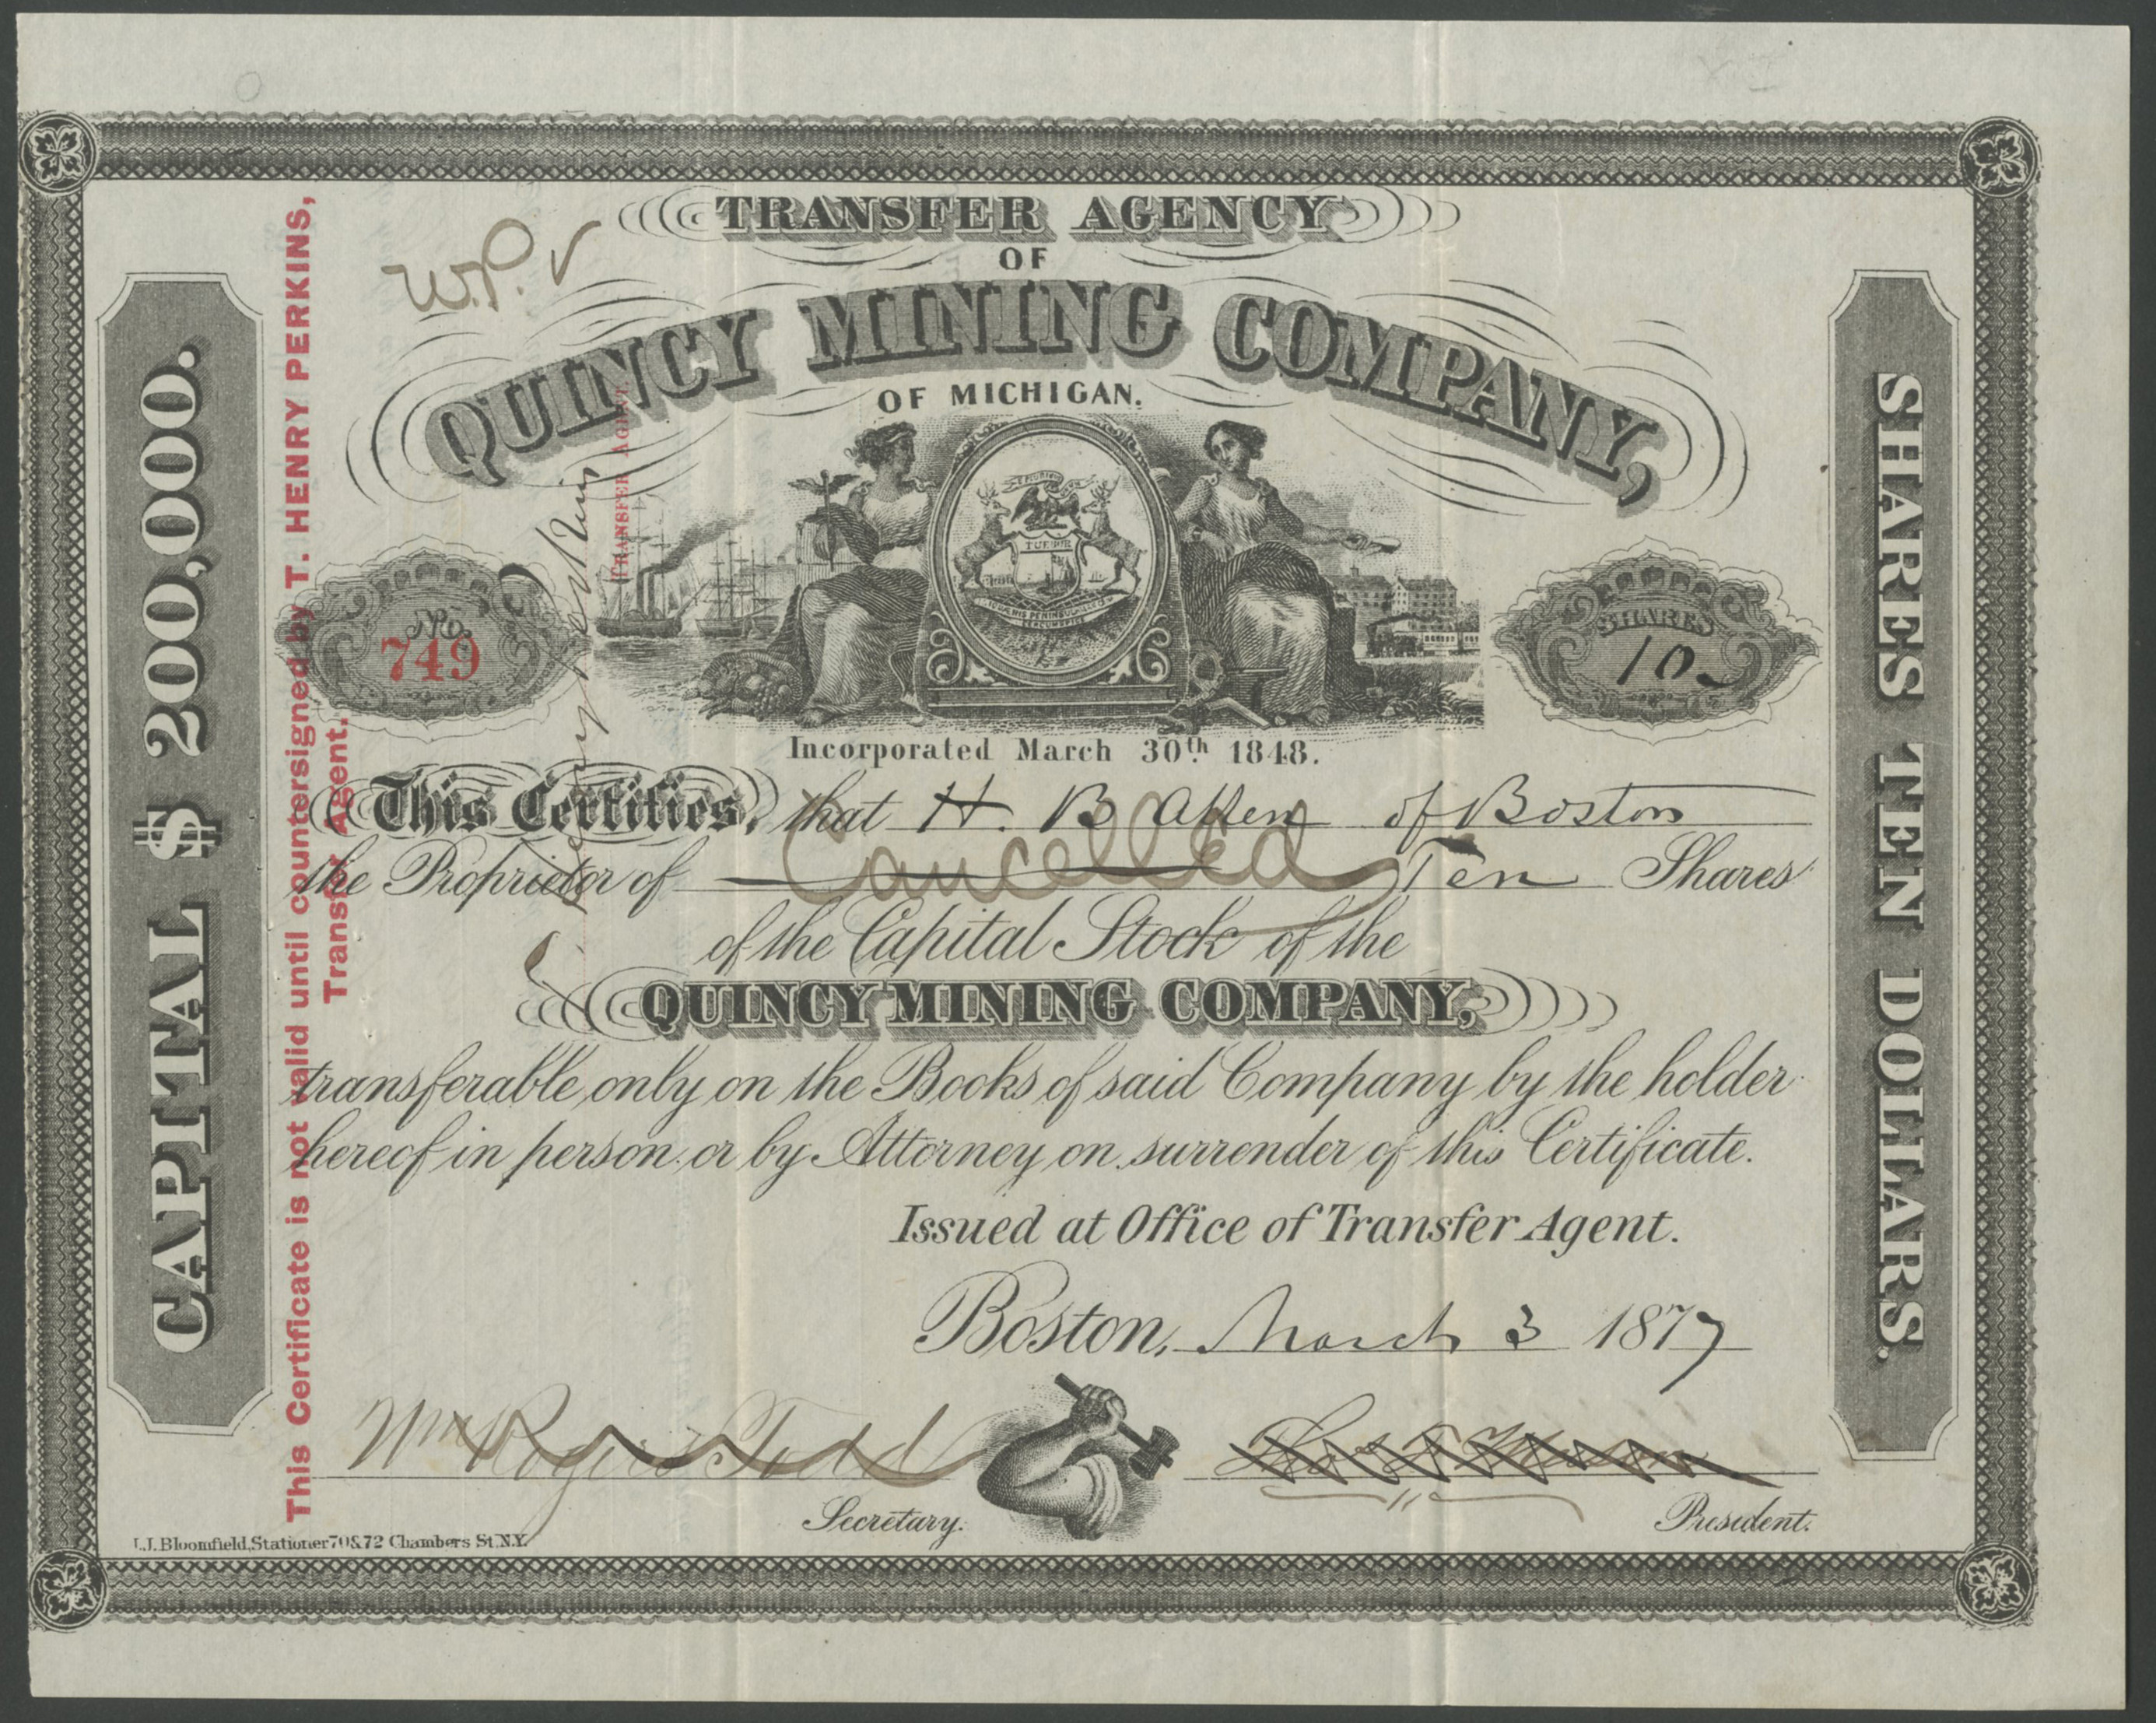 TRANSFER AGENCY
OF
W.P.
QUINCY MINING COMPANY,
OF MICHIGAN.
TUEBOR
No.
749
SHARES
10
Incorporated March 30th 1848.
This Certifies, that H. B. Allen of Boston
the Proprietor of Ten Shares
Cancelled
of the Capital Stock of the
QUINCY MINING COMPANY,
transferable only on the Books of said Company by the holder
hereof in person or by Attorney on surrender of this Certificate.
Issued at Office of Transfer Agent.
Boston, March 3 1877
Wm Rogers Todd
Secretary.
President.
L.J. Bloomfield, Stationer 70 & 72 Chambers St. N.Y.
CAPITAL $ 200,000.
This Certificate is not valid until countersigned by T. HENRY PERKINS,
Transfer Agent.
Henry Perkins
TRANSFER AGENT.
SHARES TEN DOLLARS.